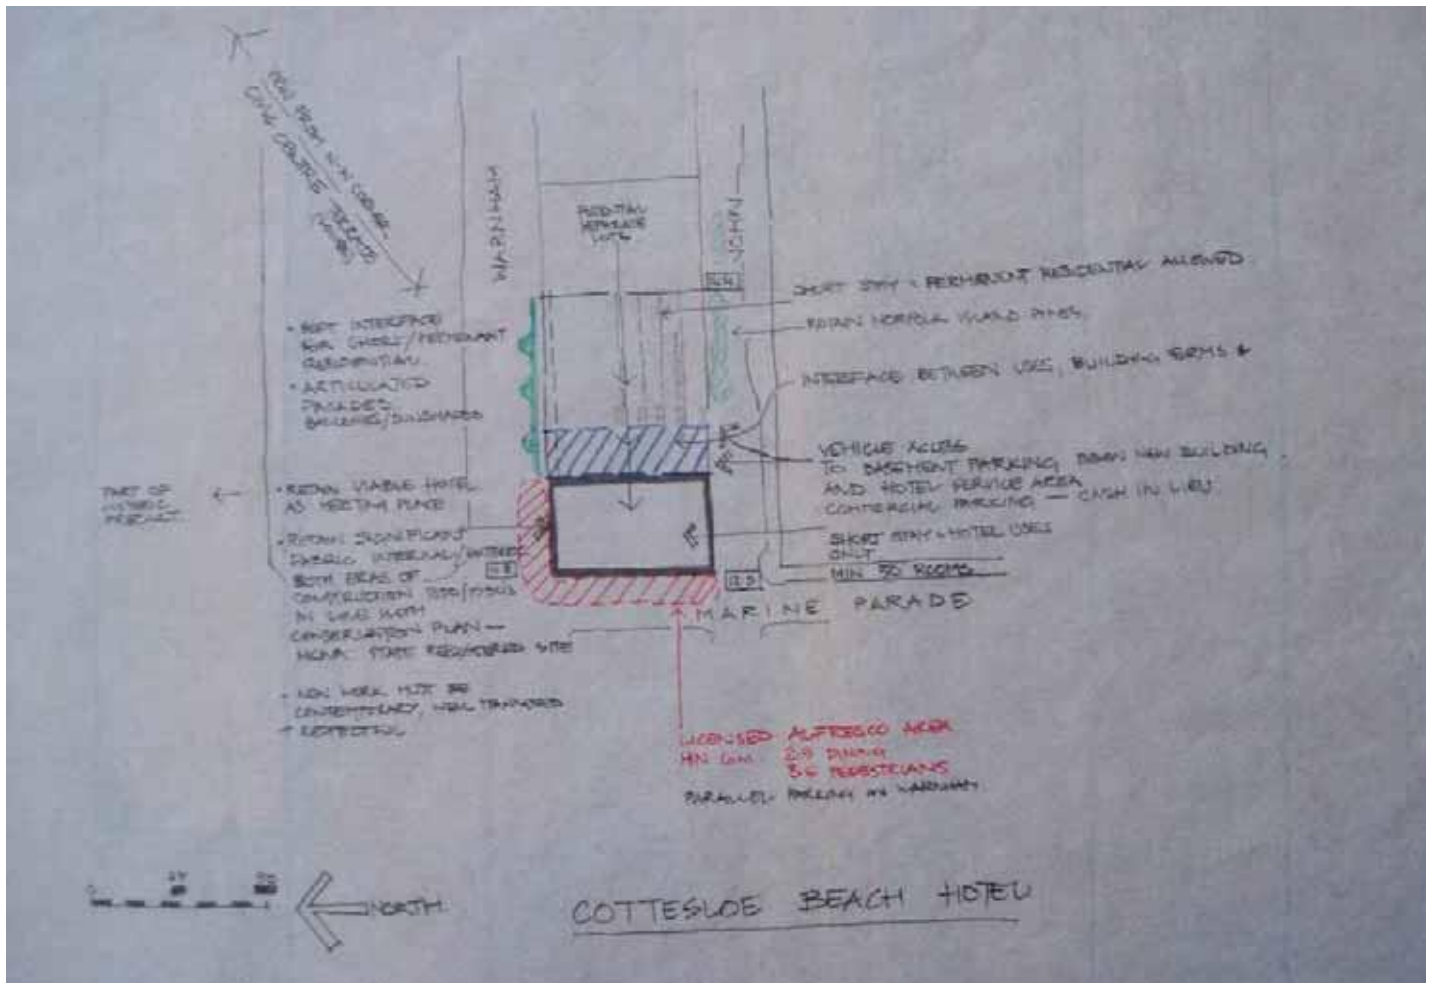 VIEW FROM N.W CORNER
CIVIC CENTRE
WARNHAM
POTENTIAL
SEPARATE
LOTS
JOHN
SHORT STAY & PERMANENT RESIDENTIAL ALLOWED
RETAIN NORFOLK ISLAND PINES
INTERFACE BETWEEN USES, BUILDING FORMS &
VEHICLE ACCESS
TO BASEMENT PARKING NEW BUILDING
AND HOTEL SERVICE AREA
COMMERCIAL PARKING — CASH IN LIEU
SHORT STAY & HOTEL USES
ONLY
MIN 50 ROOMS
MARINE PARADE
• SOFT INTERFACE
FOR SHORT/PERMANENT
RESIDENTIAL
• ARTICULATED
FACADES
BALCONIES/SUNSHADES
PART OF
HISTORIC
PRECINCT
• RETAIN VIABLE HOTEL
AS MEETING PLACE
• RETAIN SIGNIFICANT
FABRIC INTERNAL/
BOTH ERAS OF
CONSTRUCTION
IN LINE WITH
CONSERVATION PLAN —
STATE REGISTERED SITE
• NEW WORK MUST BE
CONTEMPORARY, WELL
LICENSED ALFRESCO AREA
DINING
PEDESTRIANS
PARALLEL PARKING WARNHAM
NORTH
COTTESLOE BEACH HOTEL